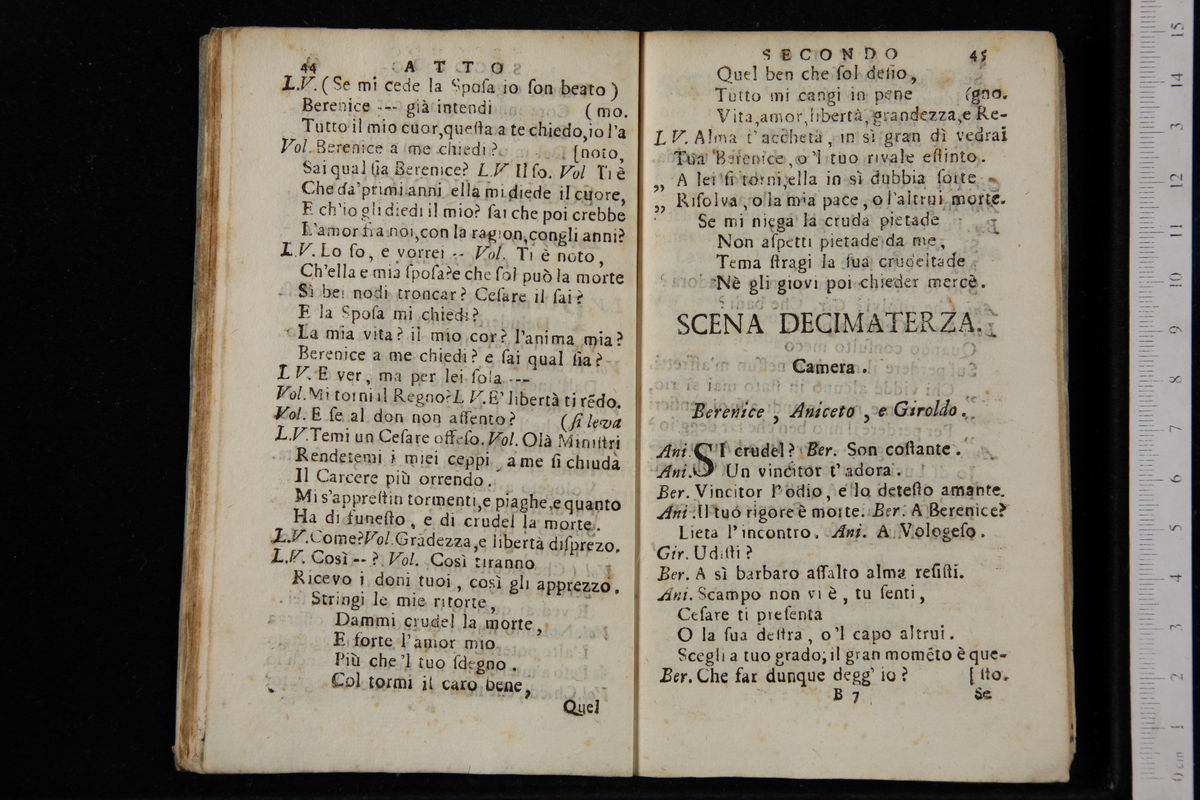 44 ATTO
L.V. (Se mi cede la Spoſa io ſon beato)
Berenice --- già intendi (mo.
Tutto il mio cuor,queſta a te chiedo,io l'a
Vol. Berenice a me chiedi? [noto,
Sai qual ſia Berenice? L.V Il ſo. Vol Ti è
Che da'primi anni ella mi diede il cuore,
E ch'io gli diedi il mio? ſai che poi crebbe
L'amor fra noi,con la ragion,congli anni?
L.V. Lo ſo, e vorrei -- Vol. Ti è noto,
Ch'ella e mia ſpoſa?e che ſol può la morte
Sì bei nodi troncar? Ceſare il ſai?
E la Spoſa mi chiedi?
La mia vita? il mio cor? l'anima mia?
Berenice a me chiedi? e ſai qual ſia?
L V. E ver, ma per lei ſola ---
Vol. Mi torni il Regno? L V. E' libertà ti rēdo.
Vol. E ſe al don non aſſento? (ſi leva
L.V. Temi un Ceſare offeſo. Vol. Olà Miniſtri
Rendetemi i miei ceppi, a me ſi chiuda
Il Carcere più orrendo.
Mi s'appreſtin tormenti,e piaghe,e quanto
Ha di funeſto, e di crudel la morte.
L.V. Come? Vol. Grādezza,e libertà diſprezo.
L.V. Così --? Vol. Così tiranno
Ricevo i doni tuoi, così gli apprezzo.
Stringi le mie ritorte,
Dammi crudel la morte,
E forte l'amor mio
Più che 'l tuo ſdegno.
Col tormi il caro bene,
Quel
SECONDO 45
Quel ben che ſol deſio,
Tutto mi cangi in pene (gno.
Vita,amor,libertà,grandezza,e Re-
L V. Alma t'accheta, in sì gran dì vedrai
Tua Berenice, o 'l tuo rivale eſtinto.
„ A lei ſi torni,ella in sì dubbia ſorte
„ Riſolva, o la mia pace, o l'altrui morte.
Se mi niega la cruda pietade
Non aſpetti pietade da me,
Tema ſtragi la ſua crudeltade
Nè gli giovi poi chieder mercè.
SCENA DECIMATERZA.
Camera.
Berenice, Aniceto, e Giroldo.
Ani. SI crudel? Ber. Son coſtante.
Ani. Un vincitor t'adora.
Ber. Vincitor l'odio, e lo deteſto amante.
Ani. Il tuo rigore è morte. Ber. A Berenice?
Lieta l'incontro. Ani. A Vologeſo.
Gir. Udiſti?
Ber. A sì barbaro aſſalto alma reſiſti.
Ani. Scampo non vi è, tu ſenti,
Ceſare ti preſenta
O la ſua deſtra, o 'l capo altrui.
Scegli a tuo grado; il gran momēto è que-
Ber. Che far dunque degg' io? [ſto.
B 7 Se